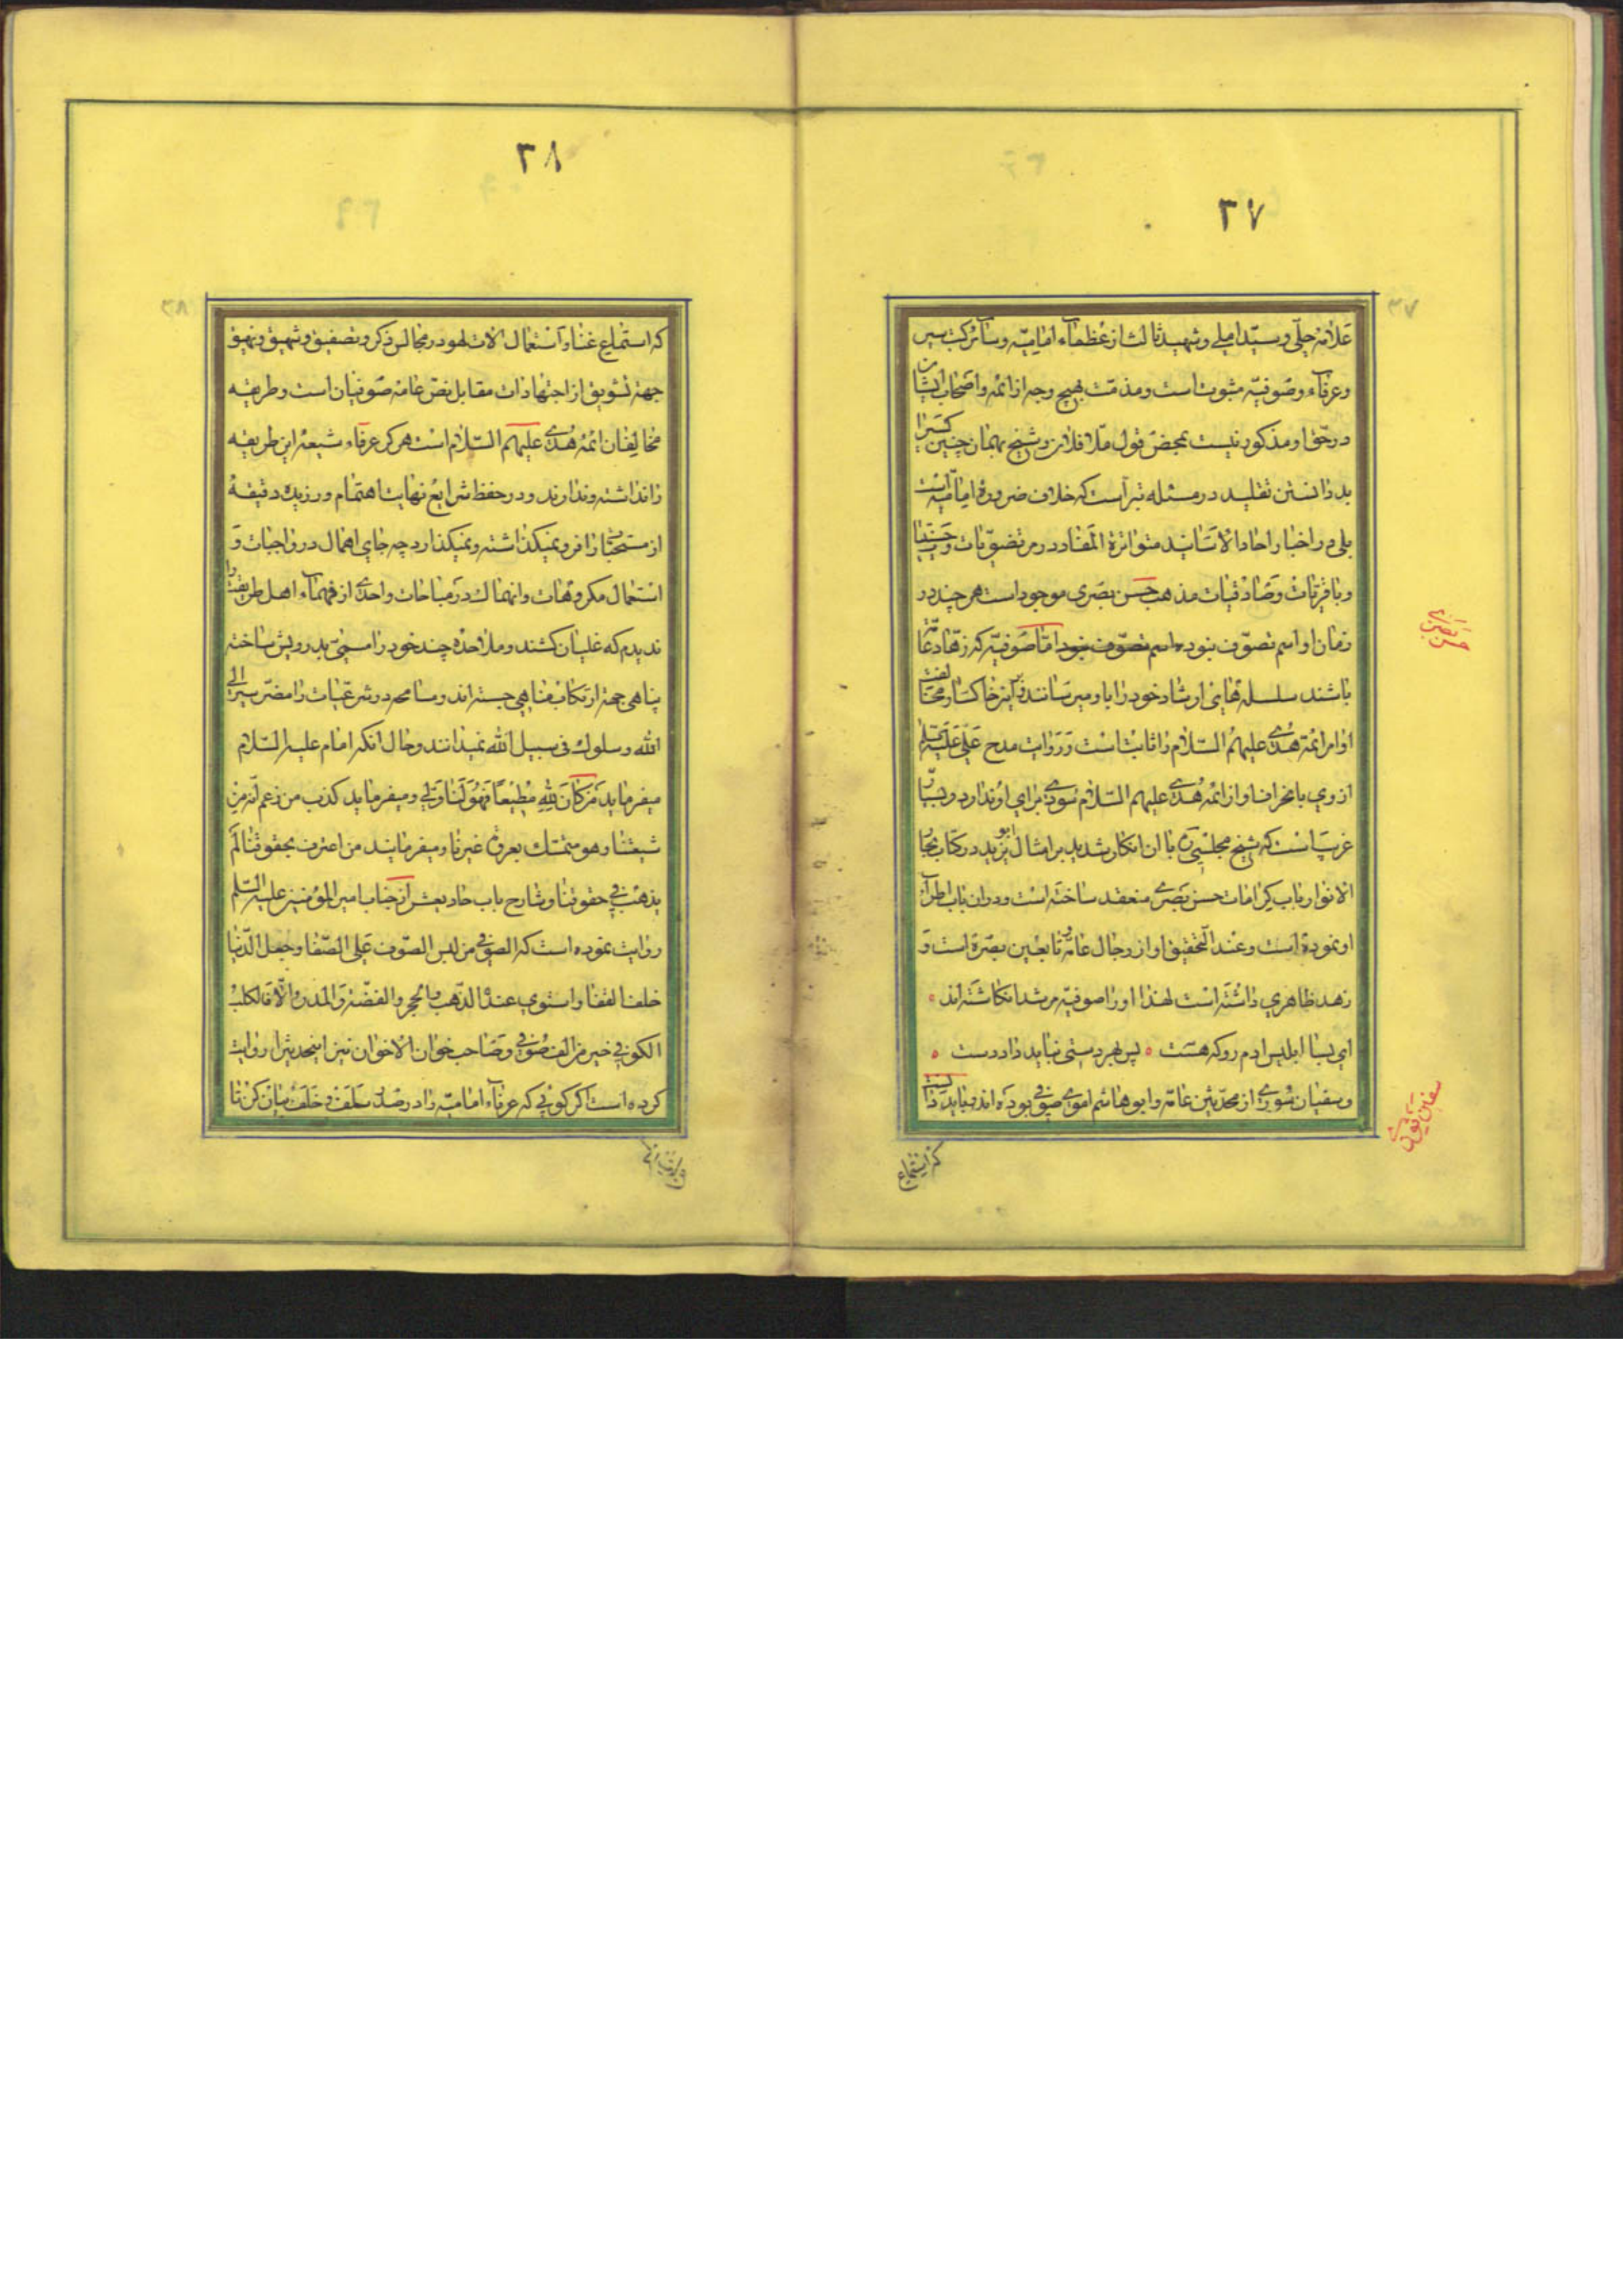 ۳۷
علامه حلی و سید املی و شهید ثالث از عظماء امامیه و سائر کتب سیر
و عرفاء و صوفیه مثبوت است و مذمت بهیچ وجه از ائمه و اصحاب ایشان
در حق او مذکور نیست بمحض قول ملا فلان و شیخ بهمان چنین کسی را
بد دانستن تقلید در مسئله تبراست که خلاف ضروره امامیه است
بلی در اخبار احاد الاسانید متواترة المفاد در مرتضویات و حسنیات
و باقریات و صادقیات مذهب حسن بصری موجود است هر چند در
زمان او اسم تصوف نبود اسم تصوف نبود اما صوفیه که زهاد عامه
باشند سلسله های ارشاد خود را باو میرسانند نیز خاکسار و مخالفت
اوامر ائمه هدی علیهم السلام را ثابت است و روایت مدح علی علیه السلام
از وی با انحراف او از ائمه هدی علیهم السلام سودی برای او ندارد و بسیار
غریب است که شیخ مجلسی با ان انکار شدید بر امثال ابو یزید در کتاب بحار
الانوار باب کرامات حسن بصری منعقد ساخته است و در ان باب اطراء
او نموده است و عند التحقیق او از رجال عامه و تابعین بصره است و
زهد ظاهری داشته است لهذا او را صوفیه مرشد انکاشته اند
ای بسا ابلیس ادم رو که هست پس بهر دستی نباید داد دست
و سفیان ثوری از محدثین عامه و ابو هاشم اموی صوفی بوده اند نباید دانست
حسن بصری
سفیان ثوری
که استماع
۳۸
که استماع غنا و استعمال الات لهو در مجالس ذکر و تصفیق و شهیق و نهیق
جهة تشویق از اجتهادات مقابل نص عامه صوفیان است و طریقه
مخالفان ائمه هدی علیهم السلام است هرکز عرفاء شیعه این طریقه
را نداشته و ندارند و در حفظ شرایع نهایت اهتمام ورزیده دقیقه
از مستحبات را فرو نمیکذاشته و نمیکذارد چه جای اهمال در واجبات و
استعمال مکروهات و انهماک در مباحات و احدی از فهماء اهل طریقت را
ندیدم که غلیان کشند و ملاحده چند خود را مسمی بدرویش ساخته
پناهی جهة ارتکاب مناهی جسته اند و مسامحه در شرعیات را مضر سیر الی
الله و سلوک فی سبیل الله نمیدانند و حال انکه امام علیه السلام
میفرماید من کان لله مطیعا فهو لنا ولی و میفرماید کذب من زعم انه من
شیعتنا و هو متمسک بعروة غیرنا و میفرمایند من اعترف بحقوقنا لم
یذهب فی حقوقنا و شارح باب حادیعشر از جناب امیر المؤمنین علیه السلم
روایت نموده است که الصوفی من لبس الصوف علی الصفا و جعل الدنیا
خلف القفا و استوی عنده الذهب و الحجر و الفضة و المدر و الا فالکلب
الکوفی خیر من الف صوفی و صاحب خوان الاخوان نیز اینحدیث را روایت
کرده است اکر کوئی که عرفاء امامیه را در صدر سلف و خلف بیان کن تا